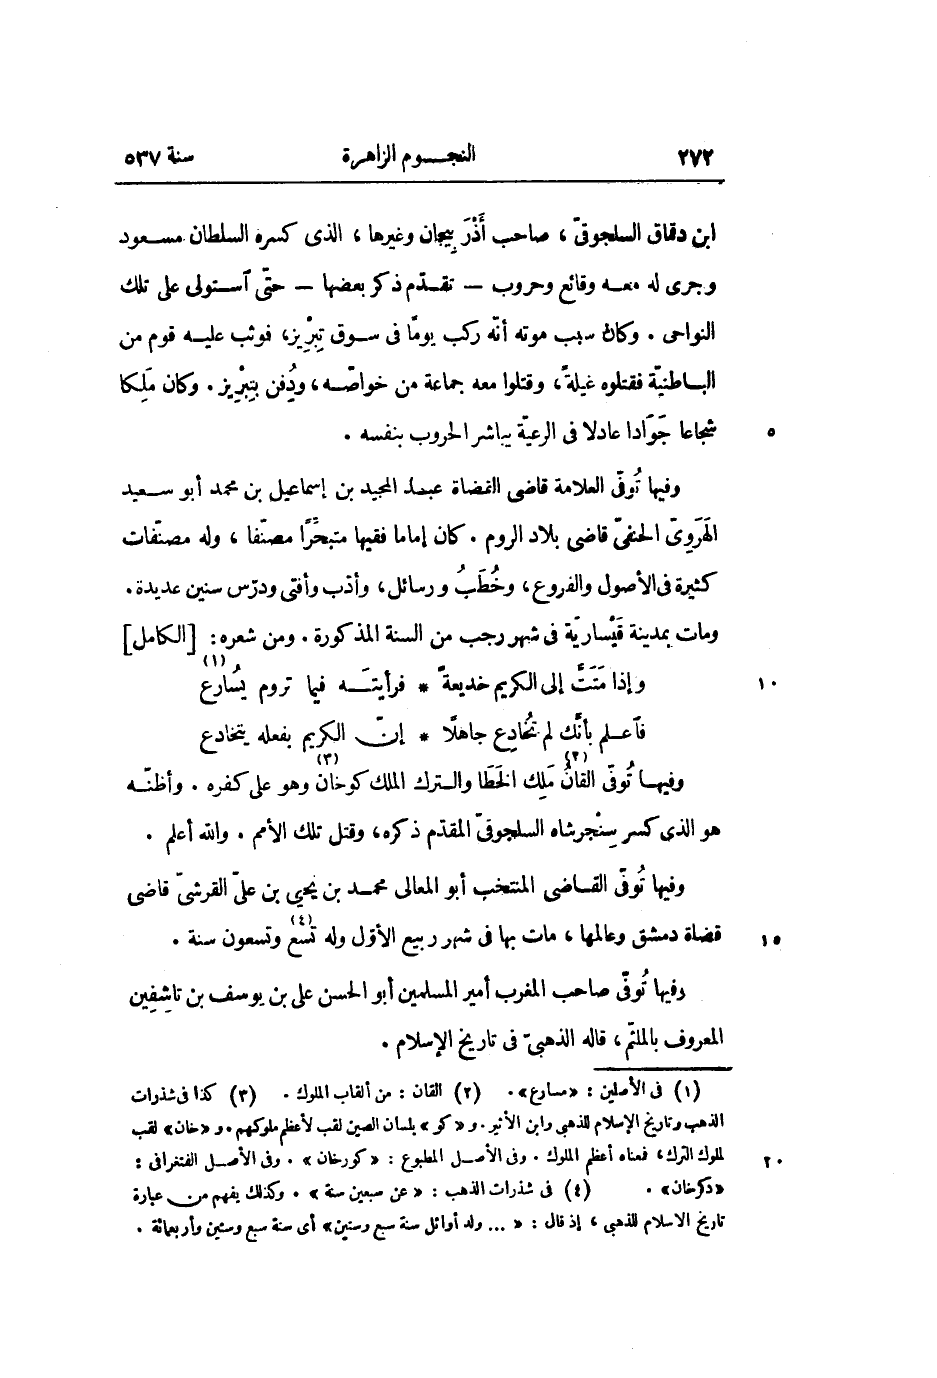 ٢٧٢ النجـــوم الزاهرة سنة ٥٣٧
ابن دقماق السلجوقىّ ، صاحب أَذْرَبِيجان وغيرها ، الذى كسره السلطان مسـعود
وجرى له معـه وقائع وحروب — تقـدّم ذكر بعضها — حتّى آسـتولى على تلك
النواحى . وكان سبب موته أنّه ركب يومًا فى سـوق تِبْرِيز، فوثب عليـه قوم من
البـاطنيّة فقتلوه غيلةً، وقتلوا معه جماعة من خواصّـه، ودُفن بتِبْرِيز . وكان مَلِكا
شجاعا جَوَادا عادلا فى الرعيّة يباشر الحروب بنفسه . ٥
وفيها تُوفّى العلامة قاضى القضاة عبـد المجيد بن إسماعيل بن محمد أبو سـعيد
الهَرَوِىّ الحنفىّ قاضى بلاد الروم . كان إماما فقيها متبحِّرًا مصنّفا ، وله مصنّفات
كثيرة فى الأصول والفروع، وخُطَبُ ورسائل، وأدب وأفتى ودرّس سنين عديدة.
ومات بمدينة قَيْساريّة فى شهر رجب من السنة المذكورة . ومن شعره : [الكامل]
وإذا مَتَتَّ إلى الكريم خديعةً * فرأيتَـه فيما تروم يُسارع (١) ١٠
فآعـلم بأنّك لم تُخادِع جاهلًا * إنّ الكريم بفعله يتخادع
وفيهـا تُوفّى القانُ (٢) مَلِك الخَطَا والـترك الملك كوخان (٣) وهو على كفره . وأظنّـه
هو الذى كسر سِنْجرشاه السلجوقىّ المقدّم ذكره، وقتل تلك الأمم . والله أعلم .
وفيها تُوفّى القـاضى المنتخب أبو المعالى محمـد بن يحيى بن علىّ القرشىّ قاضى
قضاة دمشق وعالمها ، مات بها فى شهر ربيع الأوّل وله تسع (٤) وتسعون سنة . ١٥
وفيها تُوفّى صاحب المغرب أمير المسلمين أبو الحسن على بن يوسف بن تاشِفِين
المعروف بالملثّم ، قاله الذهبىّ فى تاريخ الإسلام .
(١) فى الأصلين : «مسارع». (٢) القان : من ألقاب الملوك . (٣) كذا فى شذرات
الذهب وتاريخ الإسلام للذهبى وابن الأثير. و «كو» بلسان الصين لقب لأعظم ملوكهم . و «خان» لقب
لملوك الترك، فمعناه أعظم الملوك . وفى الأصـل المطبوع : «كورخان» . وفى الأصـل الفتغرافى : ٢٠
«دكرخان» . (٤) فى شذرات الذهب : «عن سبعين سنة» . وكذلك يفهم من عبارة
تاريخ الاسلام للذهبى ، إذ قال : « ... ولد أوائل سنة سبع وستين» أى سنة سبع وستين وأربعمائة .